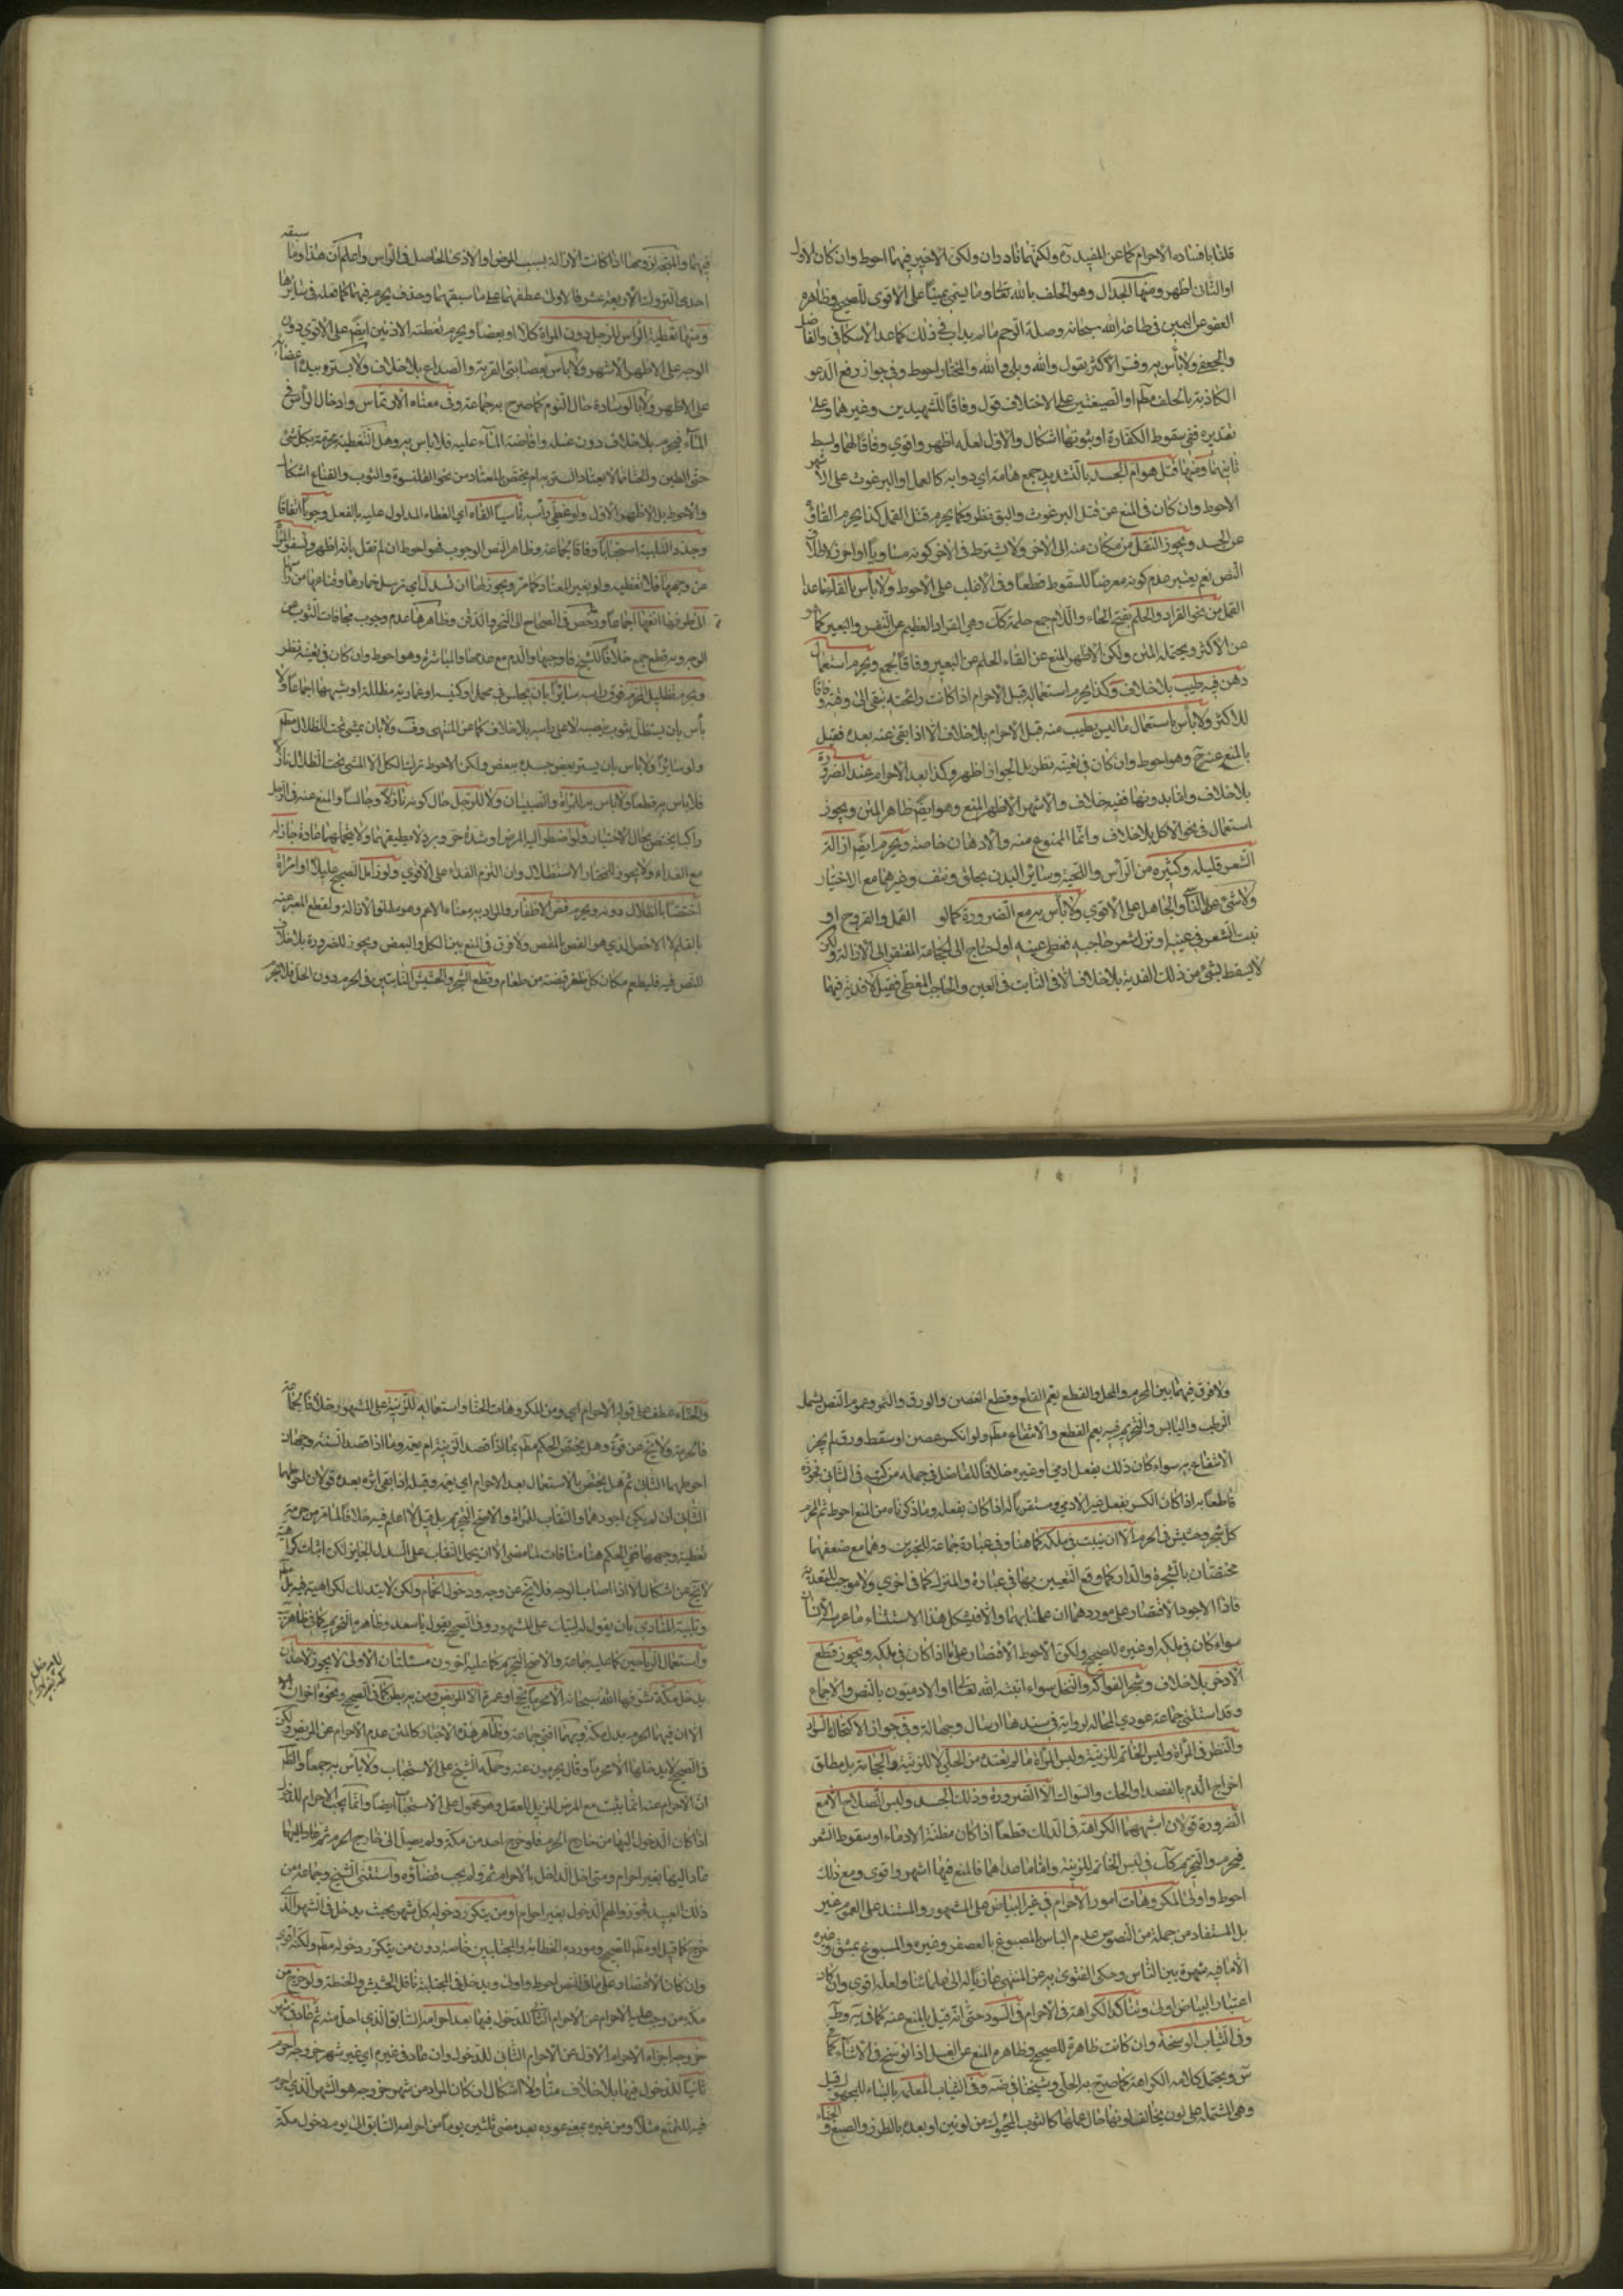 قلنا بافساده الاحرام كما عن المفيد ره ولكنهما نادران ولكن الاخير فيهما احوط وان كان الاول
او الثاني اظهر ومنها الجدال وهو الحلف بالله تعالى وما يسمى يمينا على الاقوى للصحيح وظاهره
العفو عن اليمين في طاعة الله سبحانه وصلة الرحم ما لم يداب في ذلك كما عن الاسكافي والفاضل
والجعفي ولا بأس به وفسره الاكثر بقول لا والله وبلى والله والمختار احوط وفي جواز رفع الدعوى
الكاذبة بالحلف مطم او الصيغتين على الاختلاف قول وفاقا للشهيدين وغيرهما وعلى
تقديره ففي سقوط الكفارة او ثبوتها اشكال والاول لعله اظهر واقوى وفاقا لهما
ومنها قتل هوام الجسد بالتشديد جمع هامة اي دوابه كالقمل او البرغوث على الاشهر
الاحوط وان كان في المنع عن قتل البرغوث والبق نظر وكما يحرم قتل القمل كذا يحرم القاؤه
عن الجسد ويجوز النقل من مكان منه الى الاخر ولا يشترط في الاخر كونه مساويا او احرز لاطلاق
النص نعم يعتبر عدم كونه معرضا للسقوط قطعا وفي الاغلب على الاحوط ولا بأس بالقاء ما عدا
القمل من نحو القراد والحلم بفتح الحاء واللام جمع حلمة كك وهي القراد العظيم عن النفس والبعير كما هو
عن الاكثر ويحتمله المتن ولكن الاظهر المنع عن القاء الحلم عن البعير وفاقا لجمع ويحرم استعمال
دهن فيه طيب بلا خلاف وكذا يحرم استعماله قبل الاحرام اذا كانت رائحته تبقى الى وقته وفاقا
للاكثر ولا بأس باستعمال ما ليس بطيب منه قبل الاحرام بلا خلاف الا اذا بقي عنه بعده فقيل
بالمنع عنه ح وهو احوط وان كان في تعيينه نظر بل الجواز اظهر وكذا بعد الاحرام عند الضرورة
بلا خلاف واما بدونها ففيه خلاف والاشهر الاظهر المنع وهو ايضا ظاهر المتن ويجوز
استعماله في نحو الاكل بلا خلاف وانما الممنوع منه الادهان خاصة ويحرم ايضا ازالة
الشعر قليله وكثيره من الرأس واللحية وسائر البدن بحلق ونتف وغيرهما مع الاختيار
ولا شيء على الناسي والجاهل على الاقوى ولا بأس به مع الضرورة كما لو القمل والقروح او
نبت الشعر في عينه او نزل شعر حاجبيه فغطى عينيه او احتاج الى الحجامة المفتقر الى الازالة ولكن
لا يسقط بشيء من ذلك الفدية بلا خلاف الا في النابت في العين والحاجب المغطي فقيل لا فدية فيهما
فيهما اذا كانت الازالة بسبب المرض او الاذى الحاصل في الراس واعلم ان هذا وما سبقه
احدى التروك الاربعة عشر فالاولى عطفهما على ما سبقهما وحذف يحرم فيهما كما فعله في سائرها
ومنها تغطية الراس للرجل دون المراة كلا او بعضا ويحرم تغطية الاذنين ايضا على الاقوى دون
الوجه على الاظهر الاشهر ولا بأس بعصابتي القربة والصداع بلا خلاف ولا بستره بيده او بعض اعضائه
على الاظهر ولا بالوسادة حال النوم كما صرح به جماعة وفي معناه الارتماس وادخال الراس في
الماء فيحرم بلا خلاف دون غسله وافاضة الماء عليه فلا باس به وهل التغطية محرمة بكل شيء
حتى الطين والحناء مما لا يعتاد الستر به ام يختص المعتاد من نحو القلنسوة والثوب والقناع اشكال
والاحوط بل الاظهر الاول ولو غطى راسه ناسيا القاه اي الغطاء المدلول عليه بالفعل وجوبا اتفاقا
وجدد التلبية استحبابا وفاقا لجماعة وظاهر النص الوجوب فهو احوط ان لم نقل بانه اظهر وتسفر المراة
عن وجهها فلا تغطيه ولو بغير المعتاد كما مر ويجوز لها ان تسدل اي ترسل خمارها وقناعها من راسها
الى طرف انفها اجماعا ورخص في الصحاح الى النحر والذقن وظاهرها عدم وجوب مجافات الثوب عن
الوجه وبه قطع جمع خلافا للشيخ فاوجبها والدم مع عدمها والمباشرة وهو احوط وان كان في تعيينه نظر
ويحرم تظليل المحرم فوق راسه سائرا بان يجلس في محمل او كنيسة او عمارية مظللة او شبهها اجماعا ولا
بأس بان يستظل بثوب ينصبه لا على راسه بلا خلاف كما عن المنتهى وفيه ولا بان يمشي تحت الظلال مطم
ولو سائرا ولا باس بان يستر بعض جسده ببعض ولكن الاحوط ترك الكل الا المشي تحت الظلال نازلا
فلا باس به قطعا ولا باس به للمراة والصبيان ولا للرجل حال كونه نازلا وجالسا والمنع عنه في الرجل
راكبا يختص بحال الاختيار ولو اضطر اليه لمرض او شدة حر وبرد لا يطيقهما ولا يتحملهما عادة جاز له
مع الفداء ولا يجوز للمختار الاستظلال وان التزم الفداء على الاقوى ولو زامل الصحيح عليلا او امراة
اختصا بالظلال دونه ويحرم قص الاظفار والمراد به معناه الاعم وهو مطلق الازالة والقطع المعبر عنه
بالقلم لا الاخص الذي هو القص بالمقص ولا فرق في المنع بين الكل والبعض ويجوز للضرورة بلا خلاف
للنص فيه فليطعم مكان كل ظفر قبضة من طعام وقطع الشجر والحشيش النابتين في الحرم دون الحل فلا يحرم
ولا فرق فيهما بين المحرم والمحل والقطع يعم القلع وقطع الغصن والورق والثمر وعموم النص يشمل
الرطب واليابس والتحريم فيه يعم القطع والانتفاع مطم ولو انكسر غصن او سقط ورق لم يجز
الانتفاع به سواء كان ذلك بفعل ادمي او غيره خلافا للفاضل في جملة من كتبه في الثاني فجوزه
قاطعا به اذا كان الكسر بفعل غير الادمي ومستقربا له اذا كان بفعله وما ذكرناه من المنع احوط ثم المحرم
كل شجر وحشيش في الحرم الا ان ينبت في ملكه كما هنا وفي عبارة جماعة للخبرين وهما مع ضعفهما
مختصتان بالشجرة والدار كما وقع التعبير بهما في عبارة والمنزل كما في اخرى ولا موجب للتعدية
فاذا الاجود الاقتصار على موردهما ان عملنا بهما والا فيشكل هذا الاستثناء ما غرسه الانسان
سواء كان في ملكه او غيره للصحيح ولكن الاحوط الاقتصار على ما اذا كان في ملكه ويجوز قطع
الاذخر بلا خلاف وشجر الفواكه والنخل سواء انبته الله تعالى او الادميون بالنص والاجماع
وقد استثنى جماعة عودي المحالة لرواية في سندها ارسال وجهالة وفي جواز الاكتحال بالسواد
والنظر في المراة ولبس الخاتم للزينة ولبس المراة ما لم تعتده من الحلي لا للزينة والحجامة بل مطلق
اخراج الدم بالفصد او الحك والسواك الا الضرورة ودلك الجسد ولبس السلاح الا مع
الضرورة قولان اشبههما الكراهة في الدلك قطعا اذا كان مظنة الادماء او سقوط الشعر
فيحرم والتحريم كك في لبس الخاتم للزينة واما ما عداهما فالمنع فيها اشهر واقوى ومع ذلك
احوط واولى المكروهات امور الاحرام في غير البياض على المشهور والمستند على العموم غير
بل المستفاد من جملة من النصوص عدم الباس بالمصبوغ بالعصفر وغيره والمصبوغ بمشق وغيره
الا ما فيه شهرة بين الناس وحكى الفتوى به عن المنتهى عازيا له الى علمائنا ولعله اقوى وان كان
اعتبار البياض اولى وتتاكد الكراهة في الاحرام في السود حتى انه قيل بالمنع عنه كما في
وفي الثياب الوسخة وان كانت طاهرة للصحيح وظاهره المنع عن الغسل اذا توسخ في الاثناء كما
س ويحتمل كلامه الكراهة كما صرح به الحلي وشيخنا في ضه وفي الثياب المعلمة بالبناء للمجهول قيل
وهي المشتملة على لون يخالف لونها حال عملها كالثوب المحوك من لونين او بعده بالطرز والصبغ و
والحناء عطف على قوله الاحرام اي ومن المكروهات الحناء واستعماله للزينة على المشهور خلافا لجماعة
فالحرمة ولا يخ عن قوة وهل يختص الحكم مطم بما اذا قصد الزينة ام يعمه وما اذا قصد السنة وجهان
احوطهما الثاني ثم هل يختص بالاستعمال بعد الاحرام ام يعمه وقبله اذا بقي اثره بعده قولان احوطهما
الثاني ان لم يكن اجودهما والنقاب للمراة والاصح التحريم بل قيل لا اعلم فيه خلافا لما مر من حرمة
تغطية وجهها ففي الحكم هنا منافات لما مضى الا ان يحمل النقاب على السدل الجايز لكن اثبات كراهته
لا يخ عن اشكال الا اذا اصاب الوجه فلا يخ عن وجه ودخول الحمام ولكن لا يتدلك لكراهته فيه بل مطم
وتلبية المنادي بان يقول له لبيك على المشهور وفي الصحيح يقول يا سعد وظاهره التحريم كما في ظاهر
واستعمال الرياحين كما عليه جماعة والاصح التحريم كما عليه اخرون مسئلتان الاولى لا يجوز لاحد ان
يدخل مكة شرفها الله سبحانه الا محرما بحج او عمرة الا المريض ومن به بطن كما في الصحيح ونحوه اخران
الا ان فيهما الحرم بدل مكة وبهما افتى جماعة وظاهر هذه الاخبار كالمتن عدم الاحرام عن المريض ولكن
في الصحيح لا يدخلها الا محرما وقال يحرمون عنه وحمله الشيخ على الاستحباب ولا بأس به جمعا والظاهر
ان الاحرام عنه انما يثبت مع المرض المزيل للعقل وهو محمول على الاستحباب ايضا وانما يجب الاحرام للدخول
اذا كان الدخول اليها من خارج الحرم فلو خرج احد من مكة ولم يصل الى خارج الحرم ثم عاد اليها
عاد اليها بغير احرام ومتى اخل الداخل بالاحرام اثم ولم يجب قضاؤه واستثنى الشيخ وجماعة من
ذلك العبيد فجوزوا لهم الدخول بغير احرام او من يتكرر دخوله كل شهر بحيث يدخل في الشهر الذي
خرج كما قيل او مطم للصحيح ومورده الحطابة والمجتلبين خاصة دون من يتكرر دخوله مطم ولكنه اقوى
وان كان الاقتصار على ما في النص احوط واولى ويدخل في المجتلبة ناقل الحشيش والحنطة ولو خرج من
مكة من وجب عليه الاحرام عن الاحرام الثاني للدخول فيها بعد احرامه السابق الذي احل منه ثم عاد في شهر
خروجه اجزاه الاحرام الاول عن الاحرام الثاني للدخول وان عاد في غيره اي غير شهر خروجه احرم
ثانيا للدخول فيها بلا خلاف منا ولا اشكال ان كان المراد من شهر خروجه هو الشهر الذي احرم
فيه للتمتع مثلا ومن غيره بمعنى عوده بعد مضي ثلثين يوما من احرامه السابق الى يوم دخول مكة